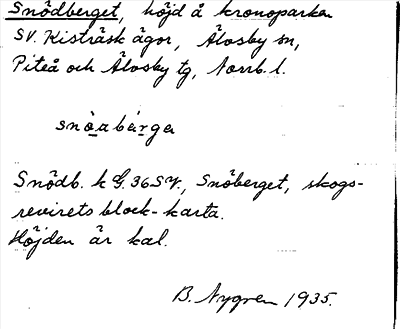 Snödberget, höjd å kronoparken
SV. Kisträsk ägor, Älvsby sn,
Piteå och Älvsby tg, Norrb. l.
snöabärga
Snödb. k G. 36 SV., Snöberget, skogs-
revirets block-karta.
Höjden är kal.
B. Nygren 1935.